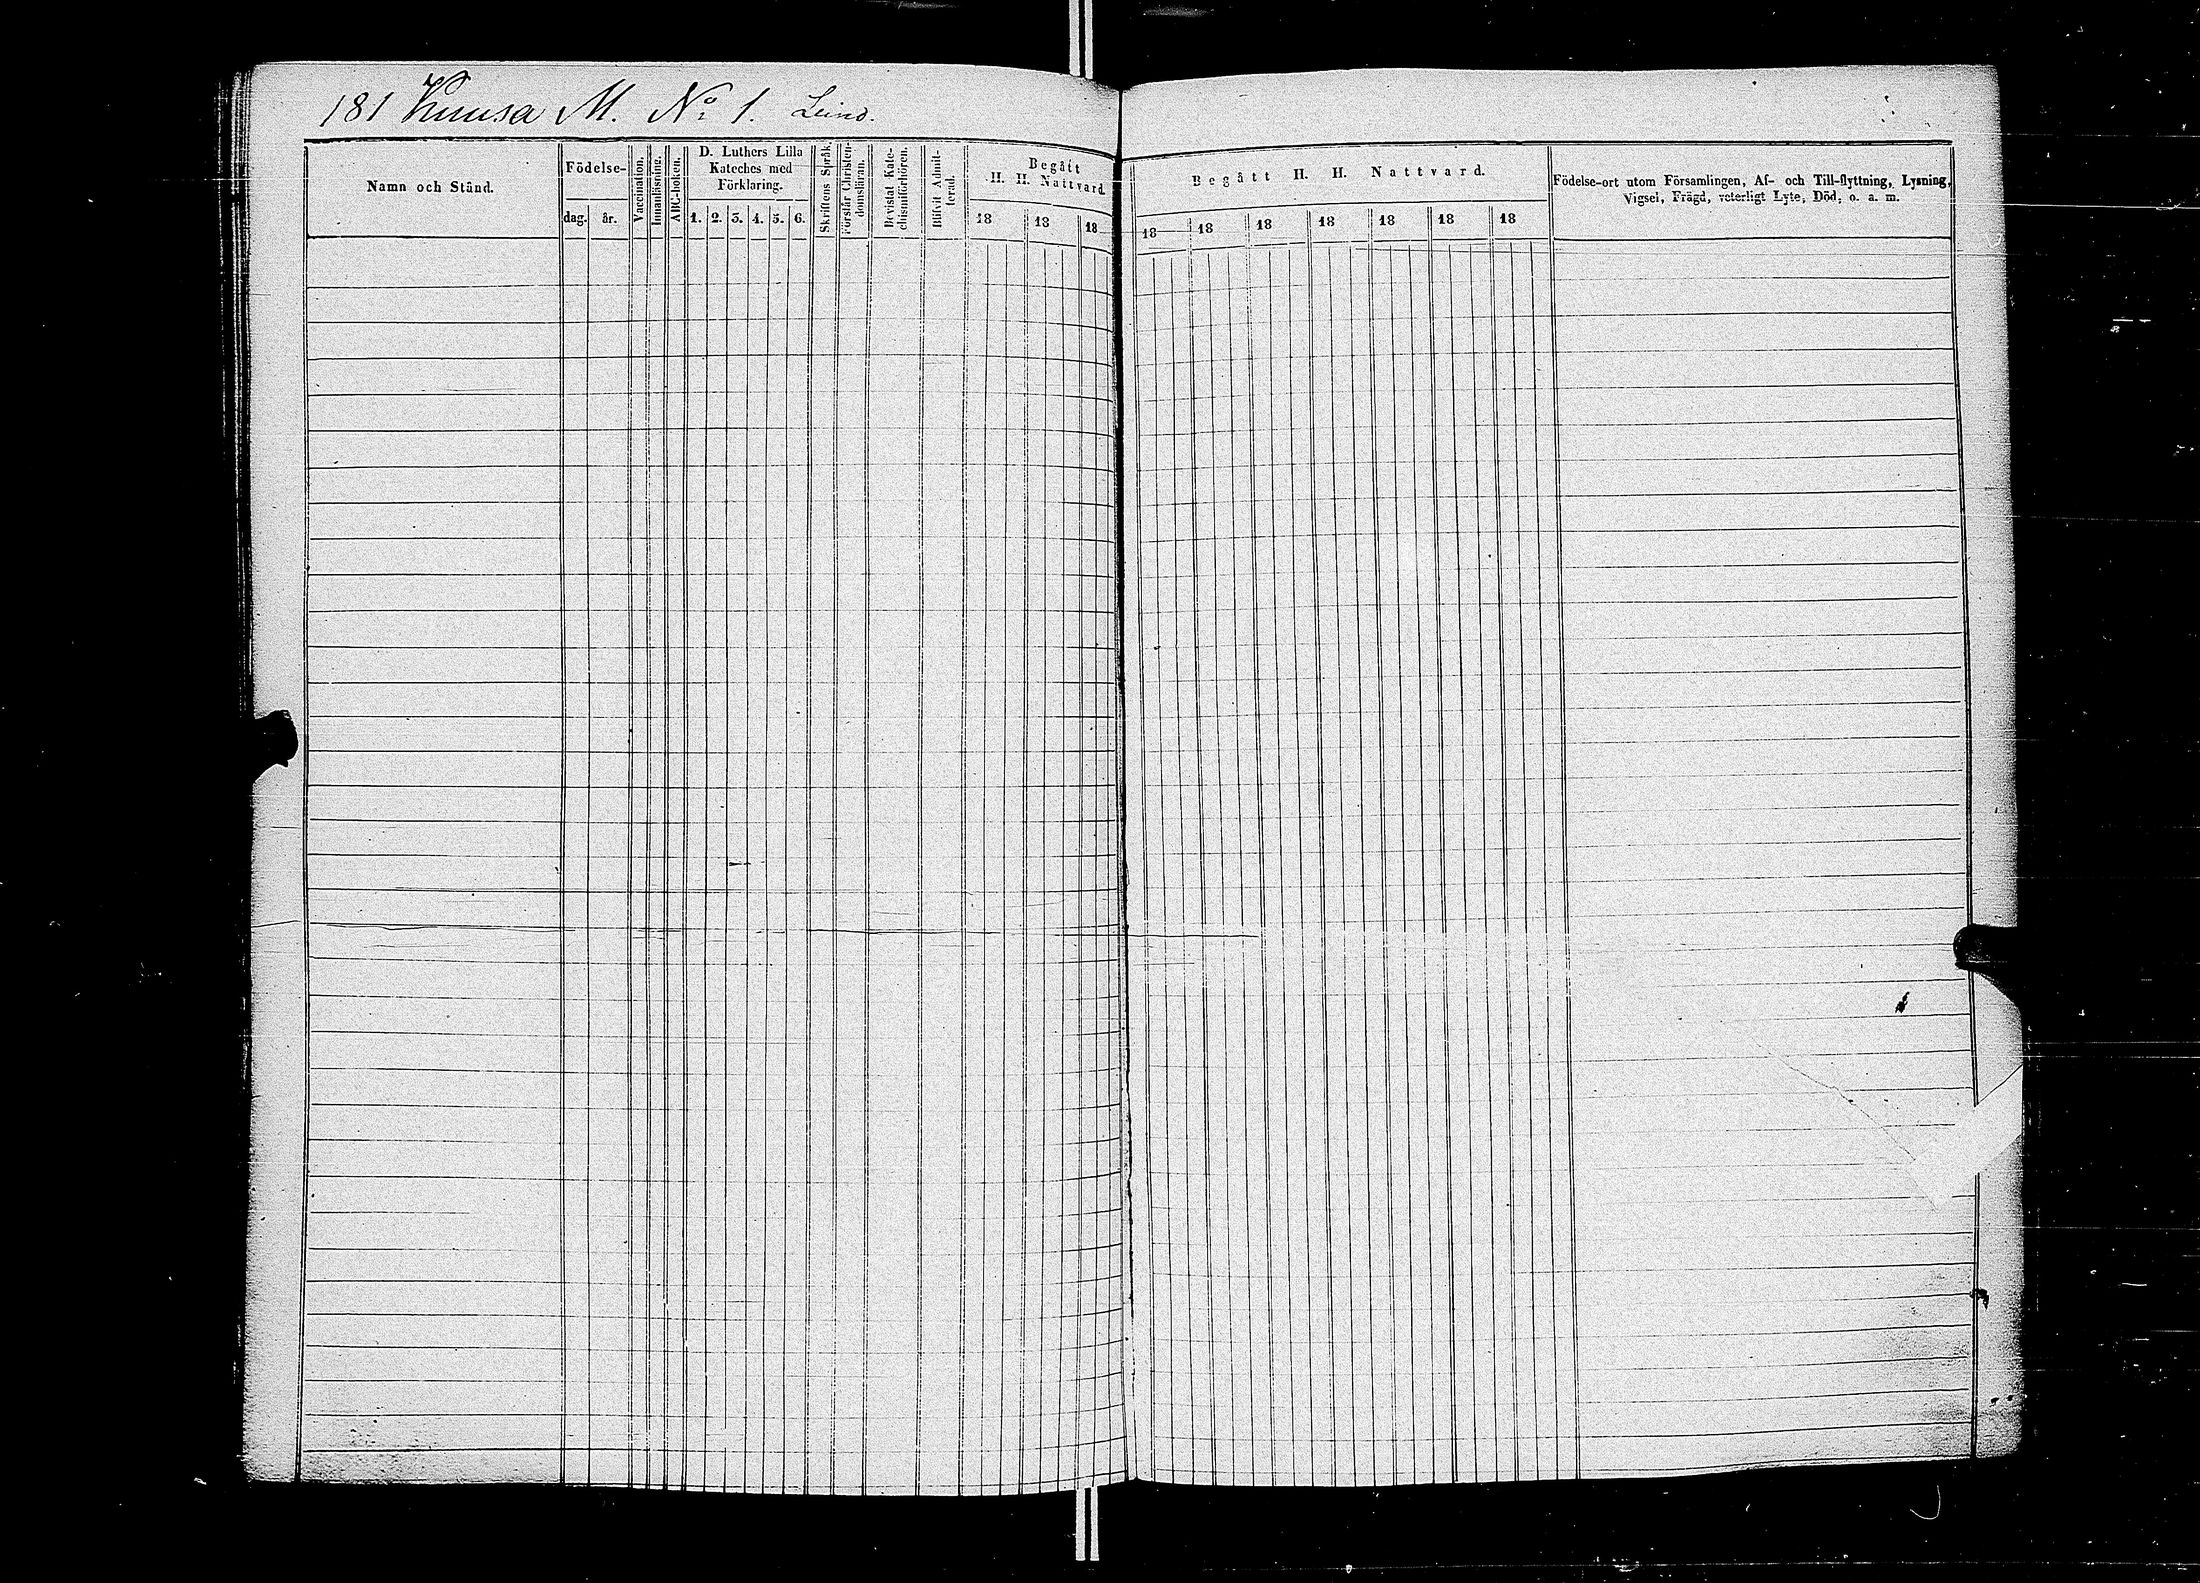 181 Kuusa M. No 1. Leino.
Namn och Stånd.
Födelse-
dag. år.
Vaccination.
Innanläsning.
ABC-boken.
D. Luthers Lilla
Kateches med
Förklaring.
1. 2. 3. 4. 5. 6.
Skriftens Språk.
Förstår Christen-
domsläran.
Bevistat Kate-
chismiförhören.
Blifvit Admit-
terad.
Begått
H. H. Nattvard
18 18 18
Begått H. H. Nattvard.
18 18 18 18 18 18 18
Födelse-ort utom Församlingen, Af- och Till-flyttning, Lysning,
Vigsel, Frägd, veterligt Lyte, Död, o. a. m.